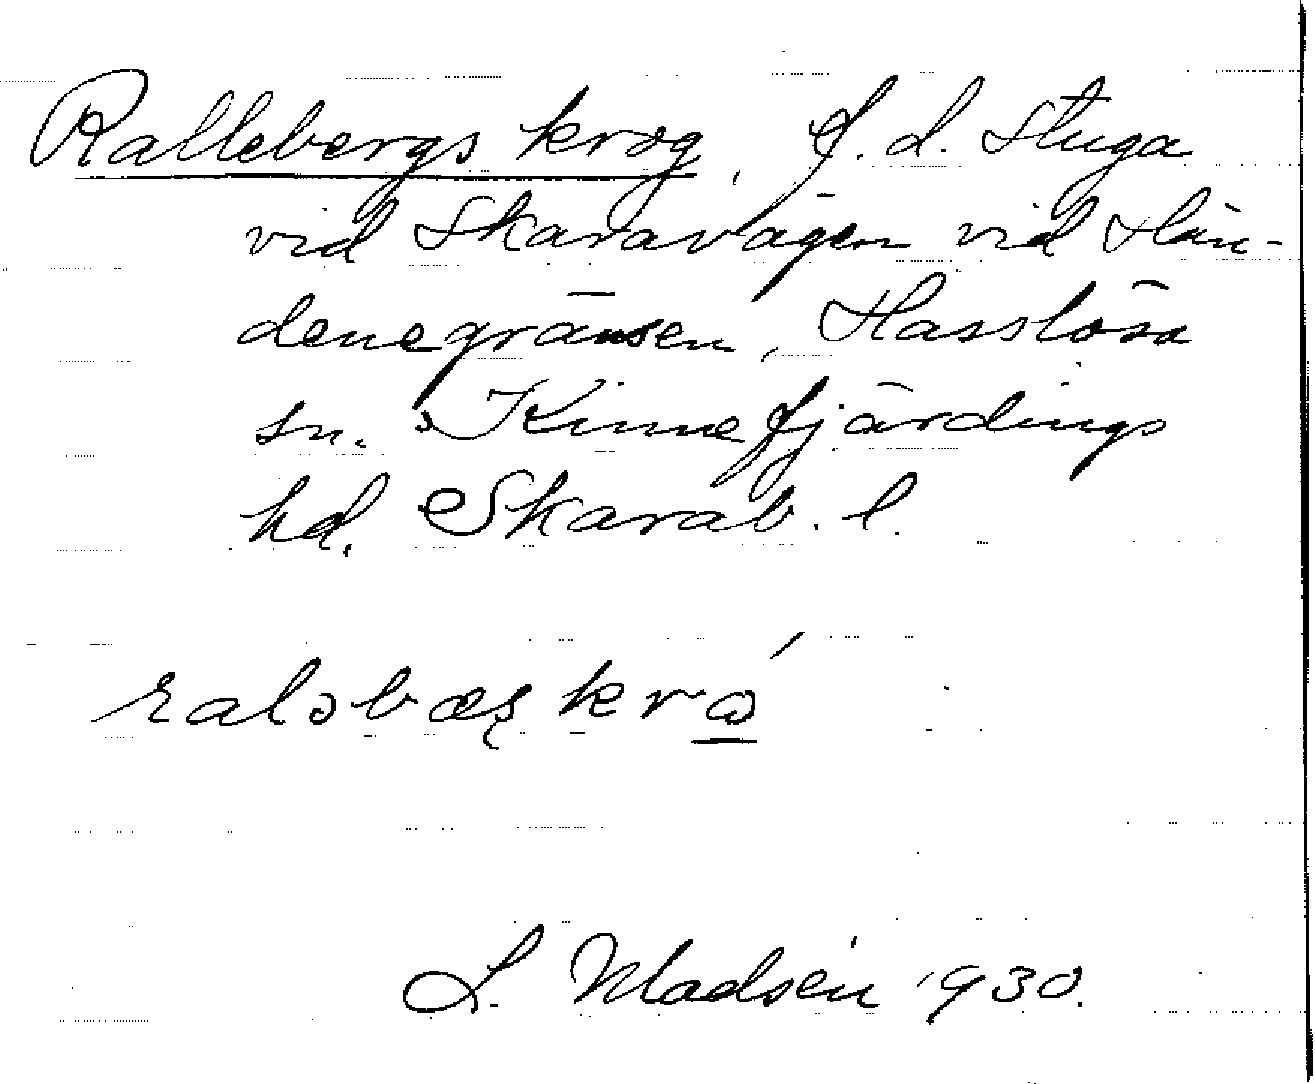 Rallebergs krog, f. d. stuga
vid Skaravägen vid Hän-
denegränsen, Hasslösa
sn. Kinnefjärdings
hd. Skarab. l.
raləbæʂkrɷ́
L. Madsén 1930.